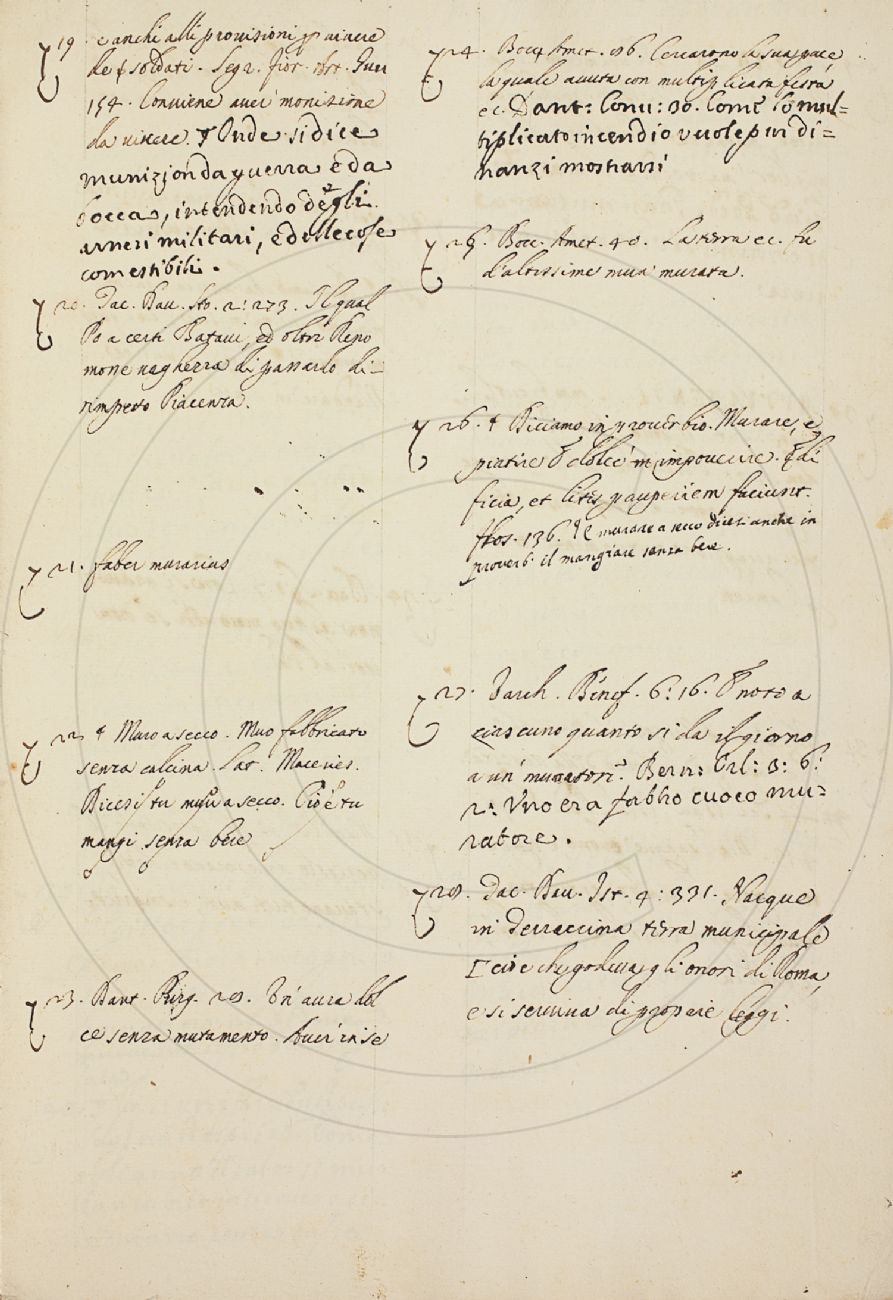 19. e anchi alli provisioni p vivere
de soldati. Segr. Fior. Art. Guer.
154. Conviene aver monizione
da vivere. Onde si dice
munizion da guerra e da
bocca, intendendo degli
arnesi militari, e delle cose
comestibili.
20. Tac. Dav. Sto. 2: 273. Il qual
Po a certi Batavi, ed oltre Reno
mosse vaghezza di passarlo di-
rimpetto Piacenza.
21. faber murarius
22 Muro a secco. Muro fabbricato
senza calcina. Lat. Maceries.
Dicesi tu muri a secco. Cioè tu
mangi senza bere
23. Dant. Purg. 28. Un' aura dol
ce senza mutamento. Aver in se
24. Bocc. Amet. 86. Cercarono la sua pace
la quale avuta con multiplicata festa
ec. Dant: Conv: 30. Come lo mul=
tiplicato incendio vuole pur di=
nanzi mostrarsi
25. Bocc. Amet. 40. La terra ec. fu
d'altissime mura murata.
26. Diciamo in proverbio. Murare, e
piatire è dolce impoverire. Ædi
ficia, et lites pauperiem faciunt.
Flos. 136. E murare a secco dicesi anche in
proverb. il mangiare senza bere.
27. Varch. Benef. 6: 16. È noto a
ciascuno quanto si da il giorno
a un' muratore. Bern: Orl: 3: 6:
2: Uno era fabbro cuoco mu=
ratore.
28. Tac. Dav. Ist. 4: 331. Nacque
in Terraccina terra municipale
[cioè che godeva gli onori di Roma,
e si serviva di proprie Leggi.